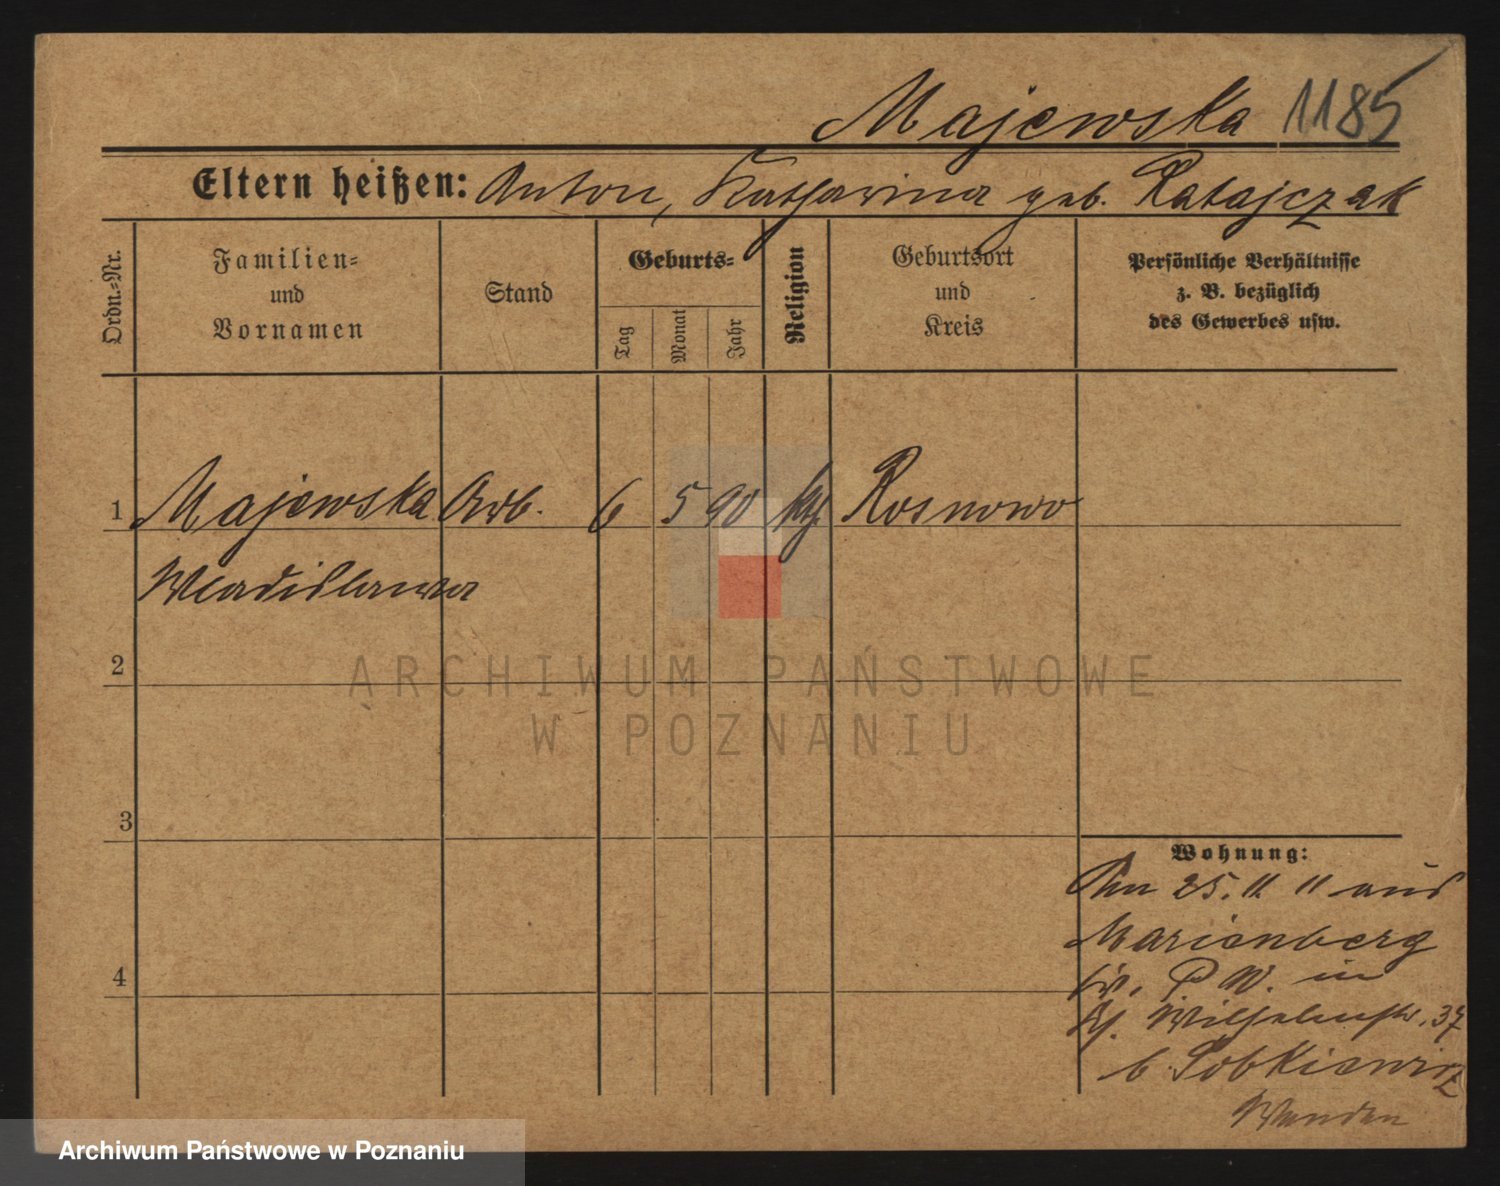 Majewska 1185
Eltern heißen: Anton, Katharina geb. Ratajczak
Ordn.-Nr.
Familien-
und
Vornamen
Stand
Geburts-
Tag
Monat
Jahr
Religion
Geburtsort
und
Kreis
Persönliche Verhältnisse
z. B. bezüglich
des Gewerbes usw.
1 Majewska Arb. 6 5 90 kth. Rosnowo
Wladislawa
2
3
4
Wohnung:
Am 25. 11. 11 aus
Marienberg
Kr. P. W. in
Wilhelmstr. 37
b. Sobkiewicz
ARCHIWUM PAŃSTWOWE
W POZNANIU
Archiwum Państwowe w Poznaniu